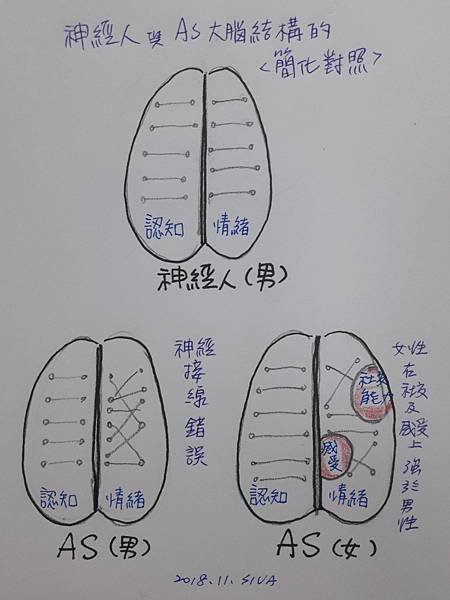 神經人與AS大腦結構的
<簡化對照>
認知 情緒
神經人(男)
神經接線錯誤
認知 情緒
AS(男)
社交能力
感受
認知 情緒
女性在社交及感受上強於男性
AS(女)
2018.11.SIVA